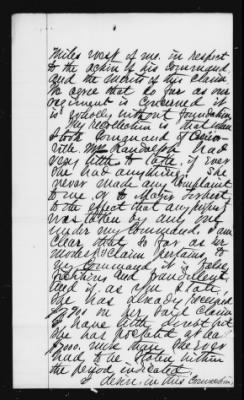 miles west of me. in respect
to the action of his command,
and the merits of her claim
We agree that so far as our
regiment is concerned it
is wholly without foundation
My recollection is that when
I took command of
ville Mrs Randolph had
very little to take, if ever
she had anything. She
never made any complaint
to me or to Major
to the effect that anything
was taken by any one
under my command. I am
clear that so far as her
modest claim pertains to
my command, it is false
and fraudulent.
if, as you state,
she has already received
on her said claim
I have little doubt but
she has pocketed at least
more than she ever
had to be stolen within
the period indicated.
I desire in this connection